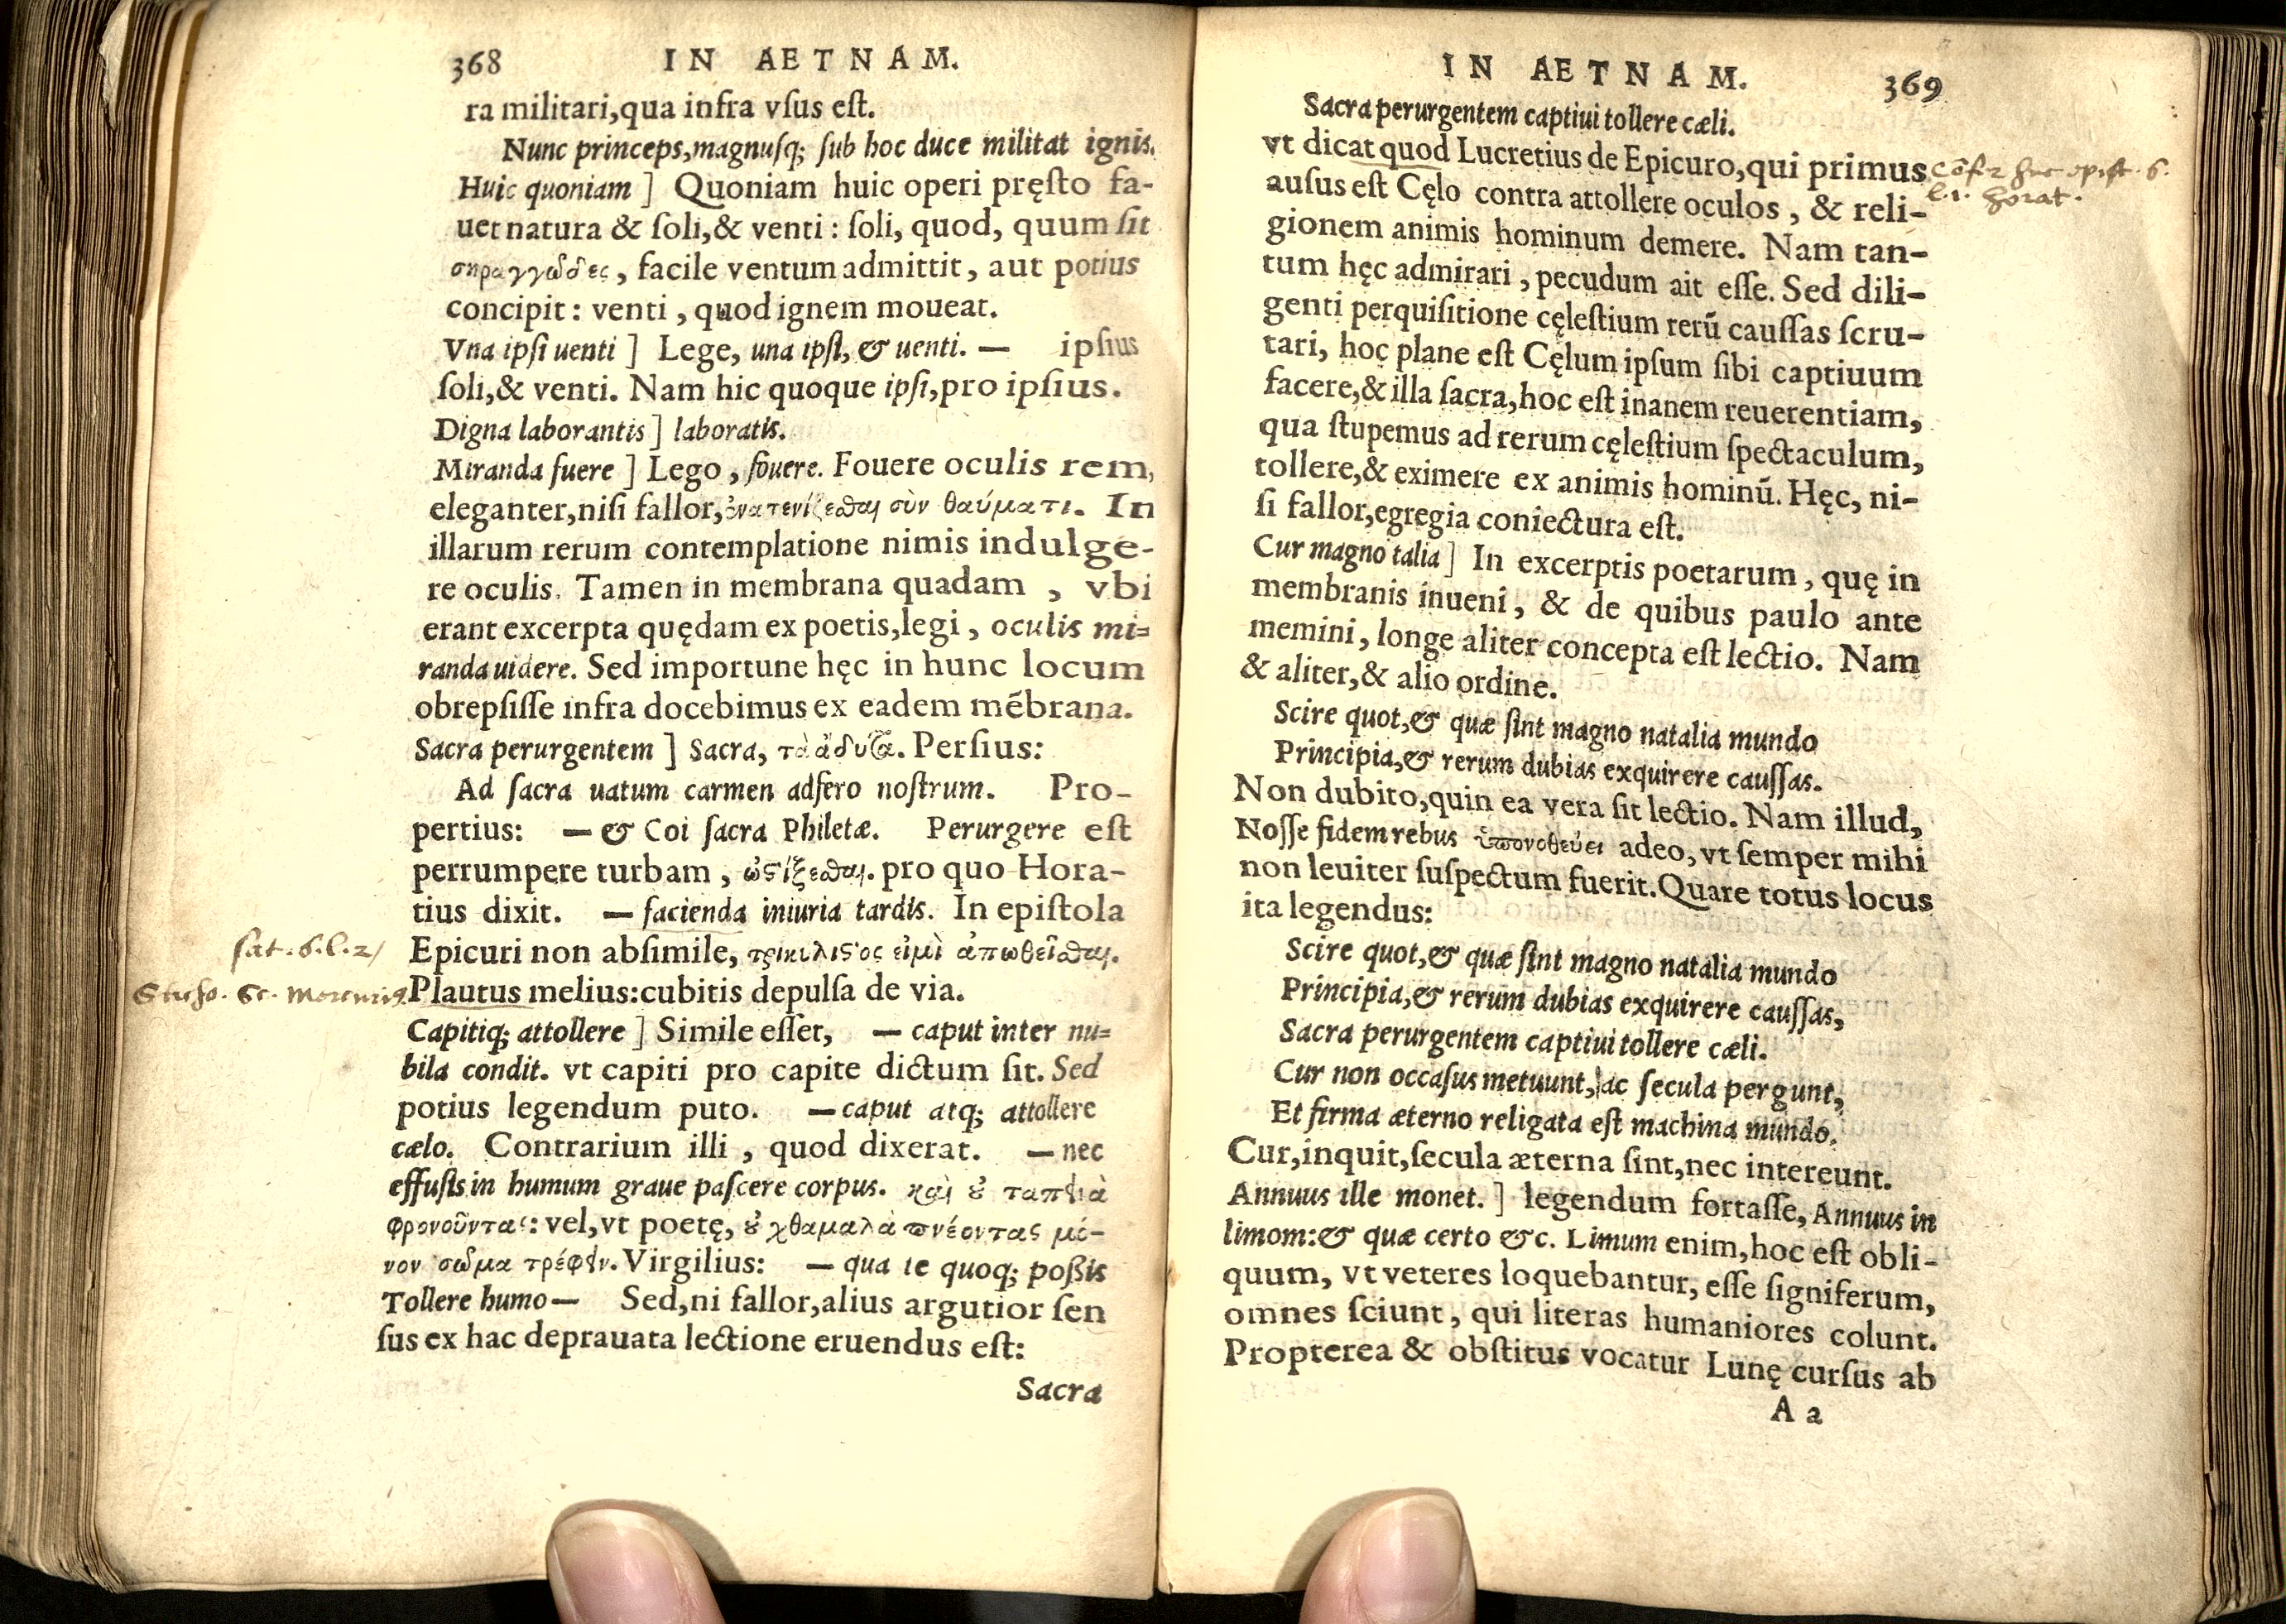 368 IN AETNAM.
ra militari,qua infra vſus eſt.
Nunc princeps,magnuſq; ſub hoc duce militat ignis.
Huic quoniam ] Quoniam huic operi pręſto fa-
uet natura & ſoli,& venti : ſoli, quod, quum ſit
σηραγγῶδες, facile ventum admittit, aut potius
concipit : venti , quod ignem moueat.
Vna ipſi uenti ] Lege, una ipſi, & uenti. — ipſius
ſoli,& venti. Nam hic quoque ipſi,pro ipſius.
Digna laborantis ] laboratis.
Miranda fuere ] Lego , fouere. Fouere oculis rem,
eleganter,niſi fallor, σὺν θαύματι. In
illarum rerum contemplatione nimis indulge-
re oculis. Tamen in membrana quadam , vbi
erant excerpta quędam ex poetis,legi , oculis mi=
randa uidere. Sed importune hęc in hunc locum
obrepſiſſe infra docebimus ex eadem mẽbrana.
Sacra perurgentem ] Sacra, τὰ ἄδυτα. Perſius:
Ad ſacra uatum carmen adfero noſtrum. Pro-
pertius: — & Coi ſacra Philetæ. Perurgere eſt
perrumpere turbam , ὠςίζεσθαι. pro quo Hora-
tius dixit. — facienda iniuria tardis. In epiſtola
sat. 6. l. 2
Epicuri non abſimile, εἰμὶ ἀπωθεῖσθαι.
Sticho. &c.
Plautus melius:cubitis depulſa de via.
Capitiq; attollere ] Simile eſſet, — caput inter nu=
bila condit. vt capiti pro capite dictum ſit. Sed
potius legendum puto. — caput atq; attollere
cælo. Contrarium illi , quod dixerat. — nec
effuſis in humum graue paſcere corpus. καὶ ȣ ταπεινὰ
φρονοῦντας: vel,vt poetę, ȣ χθαμαλὰ πνέοντας μέ-
νον σῶμα τρέφειν. Virgilius: — qua te quoq; poßis
Tollere humo — Sed,ni fallor,alius argutior ſen
ſus ex hac deprauata lectione eruendus eſt:
Sacra
IN AETNAM. 369
Sacra perurgentem captiui tollere cæli.
vt dicat quod Lucretius de Epicuro,qui primus
cõfer huc epist. 6.
auſus eſt Cęlo contra attollere oculos , & reli-
l. 1. Horat.
gionem animis hominum demere. Nam tan-
tum hęc admirari , pecudum ait eſſe. Sed dili-
genti perquiſitione cęleſtium rerũ cauſſas ſcru-
tari, hoc plane eſt Cęlum ipſum ſibi captiuum
facere,& illa ſacra,hoc eſt inanem reuerentiam,
qua ſtupemus ad rerum cęleſtium ſpectaculum,
tollere,& eximere ex animis hominũ. Hęc, ni-
ſi fallor,egregia coniectura eſt.
Cur magno talia ] In excerptis poetarum , quę in
membranis inueni , & de quibus paulo ante
memini , longe aliter concepta eſt lectio. Nam
& aliter,& alio ordine.
Scire quot,& quæ ſint magno natalia mundo
Principia,& rerum dubias exquirere cauſſas.
Non dubito,quin ea vera ſit lectio. Nam illud,
Noſſe fidem rebus ὑπονοθεύει adeo,vt ſemper mihi
non leuiter ſuſpectum fuerit. Quare totus locus
ita legendus:
Scire quot,& quæ ſint magno natalia mundo
Principia,& rerum dubias exquirere cauſſas,
Sacra perurgentem captiui tollere cæli.
Cur non occaſus metuunt, ac ſecula pergunt,
Et firma æterno religata eſt machina mundo.
Cur,inquit,ſecula æterna ſint,nec intereunt.
Annuus ille monet. ] legendum fortaſſe, Annuus in
limom:& quæ certo &c. Limum enim,hoc eſt obli-
quum, vt veteres loquebantur, eſſe ſigniferum,
omnes ſciunt , qui literas humaniores colunt.
Propterea & obſtitus vocatur Lunę curſus ab
A a